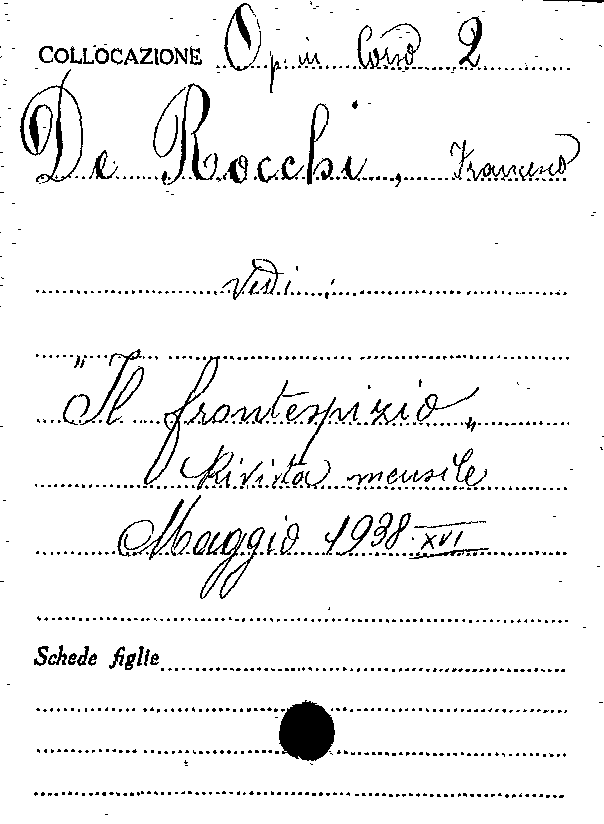 COLLOCAZIONE Op. in Corso 2
De Rocchi, Francesco
Vedi :
"Il frontespizio"
Rivista mensile
Maggio 1938-XVI
Schede figlie